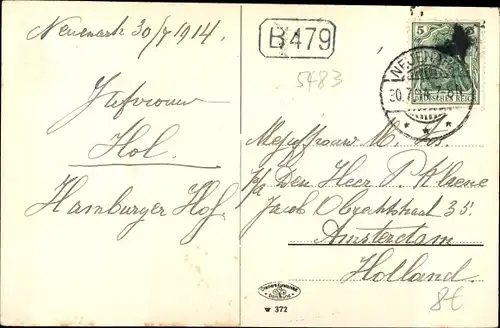 Neuenarh 30/7 1914.
Juffrouw
Hol.
Hamburger Hof.
B479
5483
5
DEUTSCHES REICH
Mejuffrouw M.
p/a Den Heer P. Kleene
Jacob Obrechtstraat 35.
Amsterdam
Holland.
372
8€